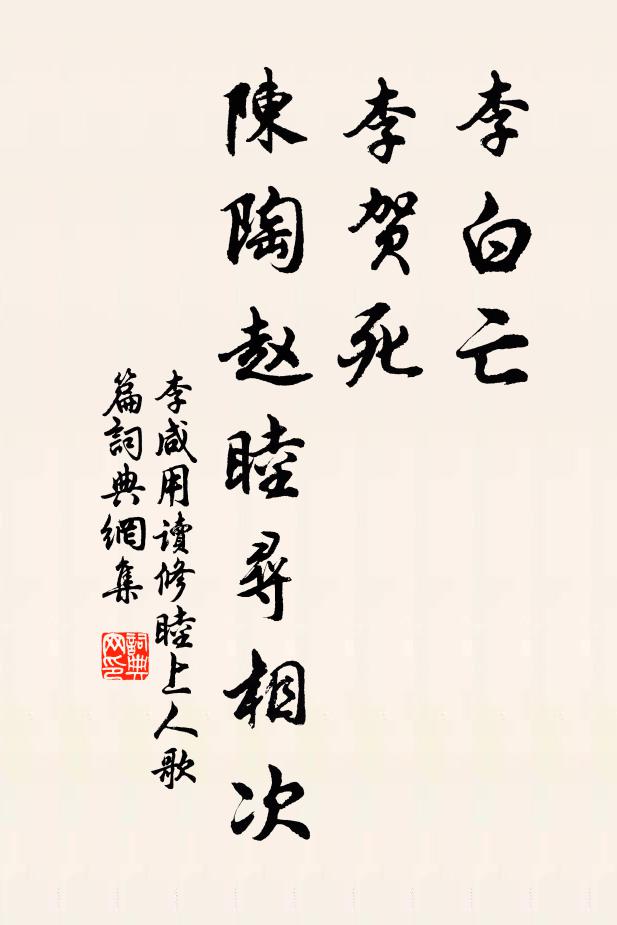 李白亡
李贺死
陳陶赵睦尋相次
李咸用讀修睦上人歌
篇詞典網集
詞典
网印